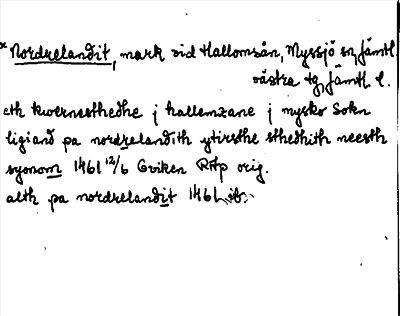 *Nordrelandit, mark vid Hallomsån, Myssjö sn, Jämtl.
västra tg, Jämtl. l.
eth kwernsthedhe j hallemzane j mysko Sokn
ligiand pa nordrelandith ytirsthe sthedhith neesth
syonom 1461 12/6 Oviken RAp orig.
alth pa nordrelandit 1461 ib.